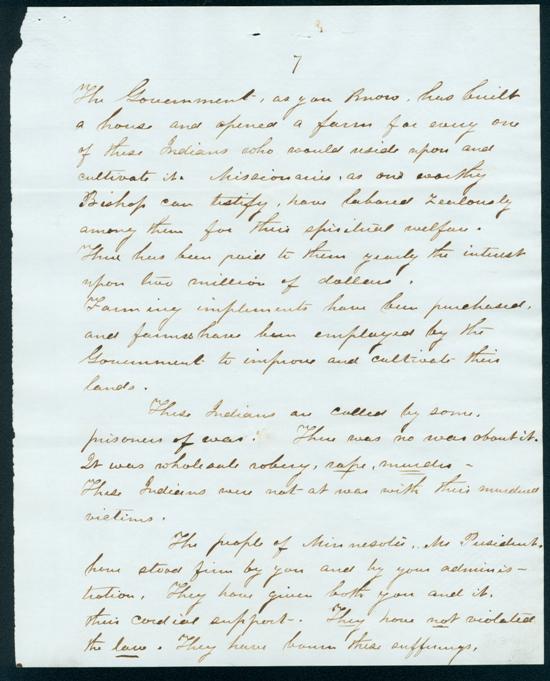 7
The Government, as you know, has built
a house and opened a farm for every one
of these Indians who would reside upon and
cultivate it. Missionaries, as our worthy
Bishop can testify, have labored zealously
among them for their spiritual welfare.
There has been paid to them yearly the interest
upon two million of dollars.
Farming implements have been purchased,
and farmers have been employed by the
Government to improve and cultivate their
lands.
These Indians are called by some,
prisoners of war. There was no war about it.
It was wholesale robery, rape, murder -
These Indians were not at war with their murdered
victims.
The people of Minnesota, Mr President,
have stood firm by you and by your adminis-
tration. They have given both you and it,
their cordial support. They have not violated
the law. They have borne these sufferings,